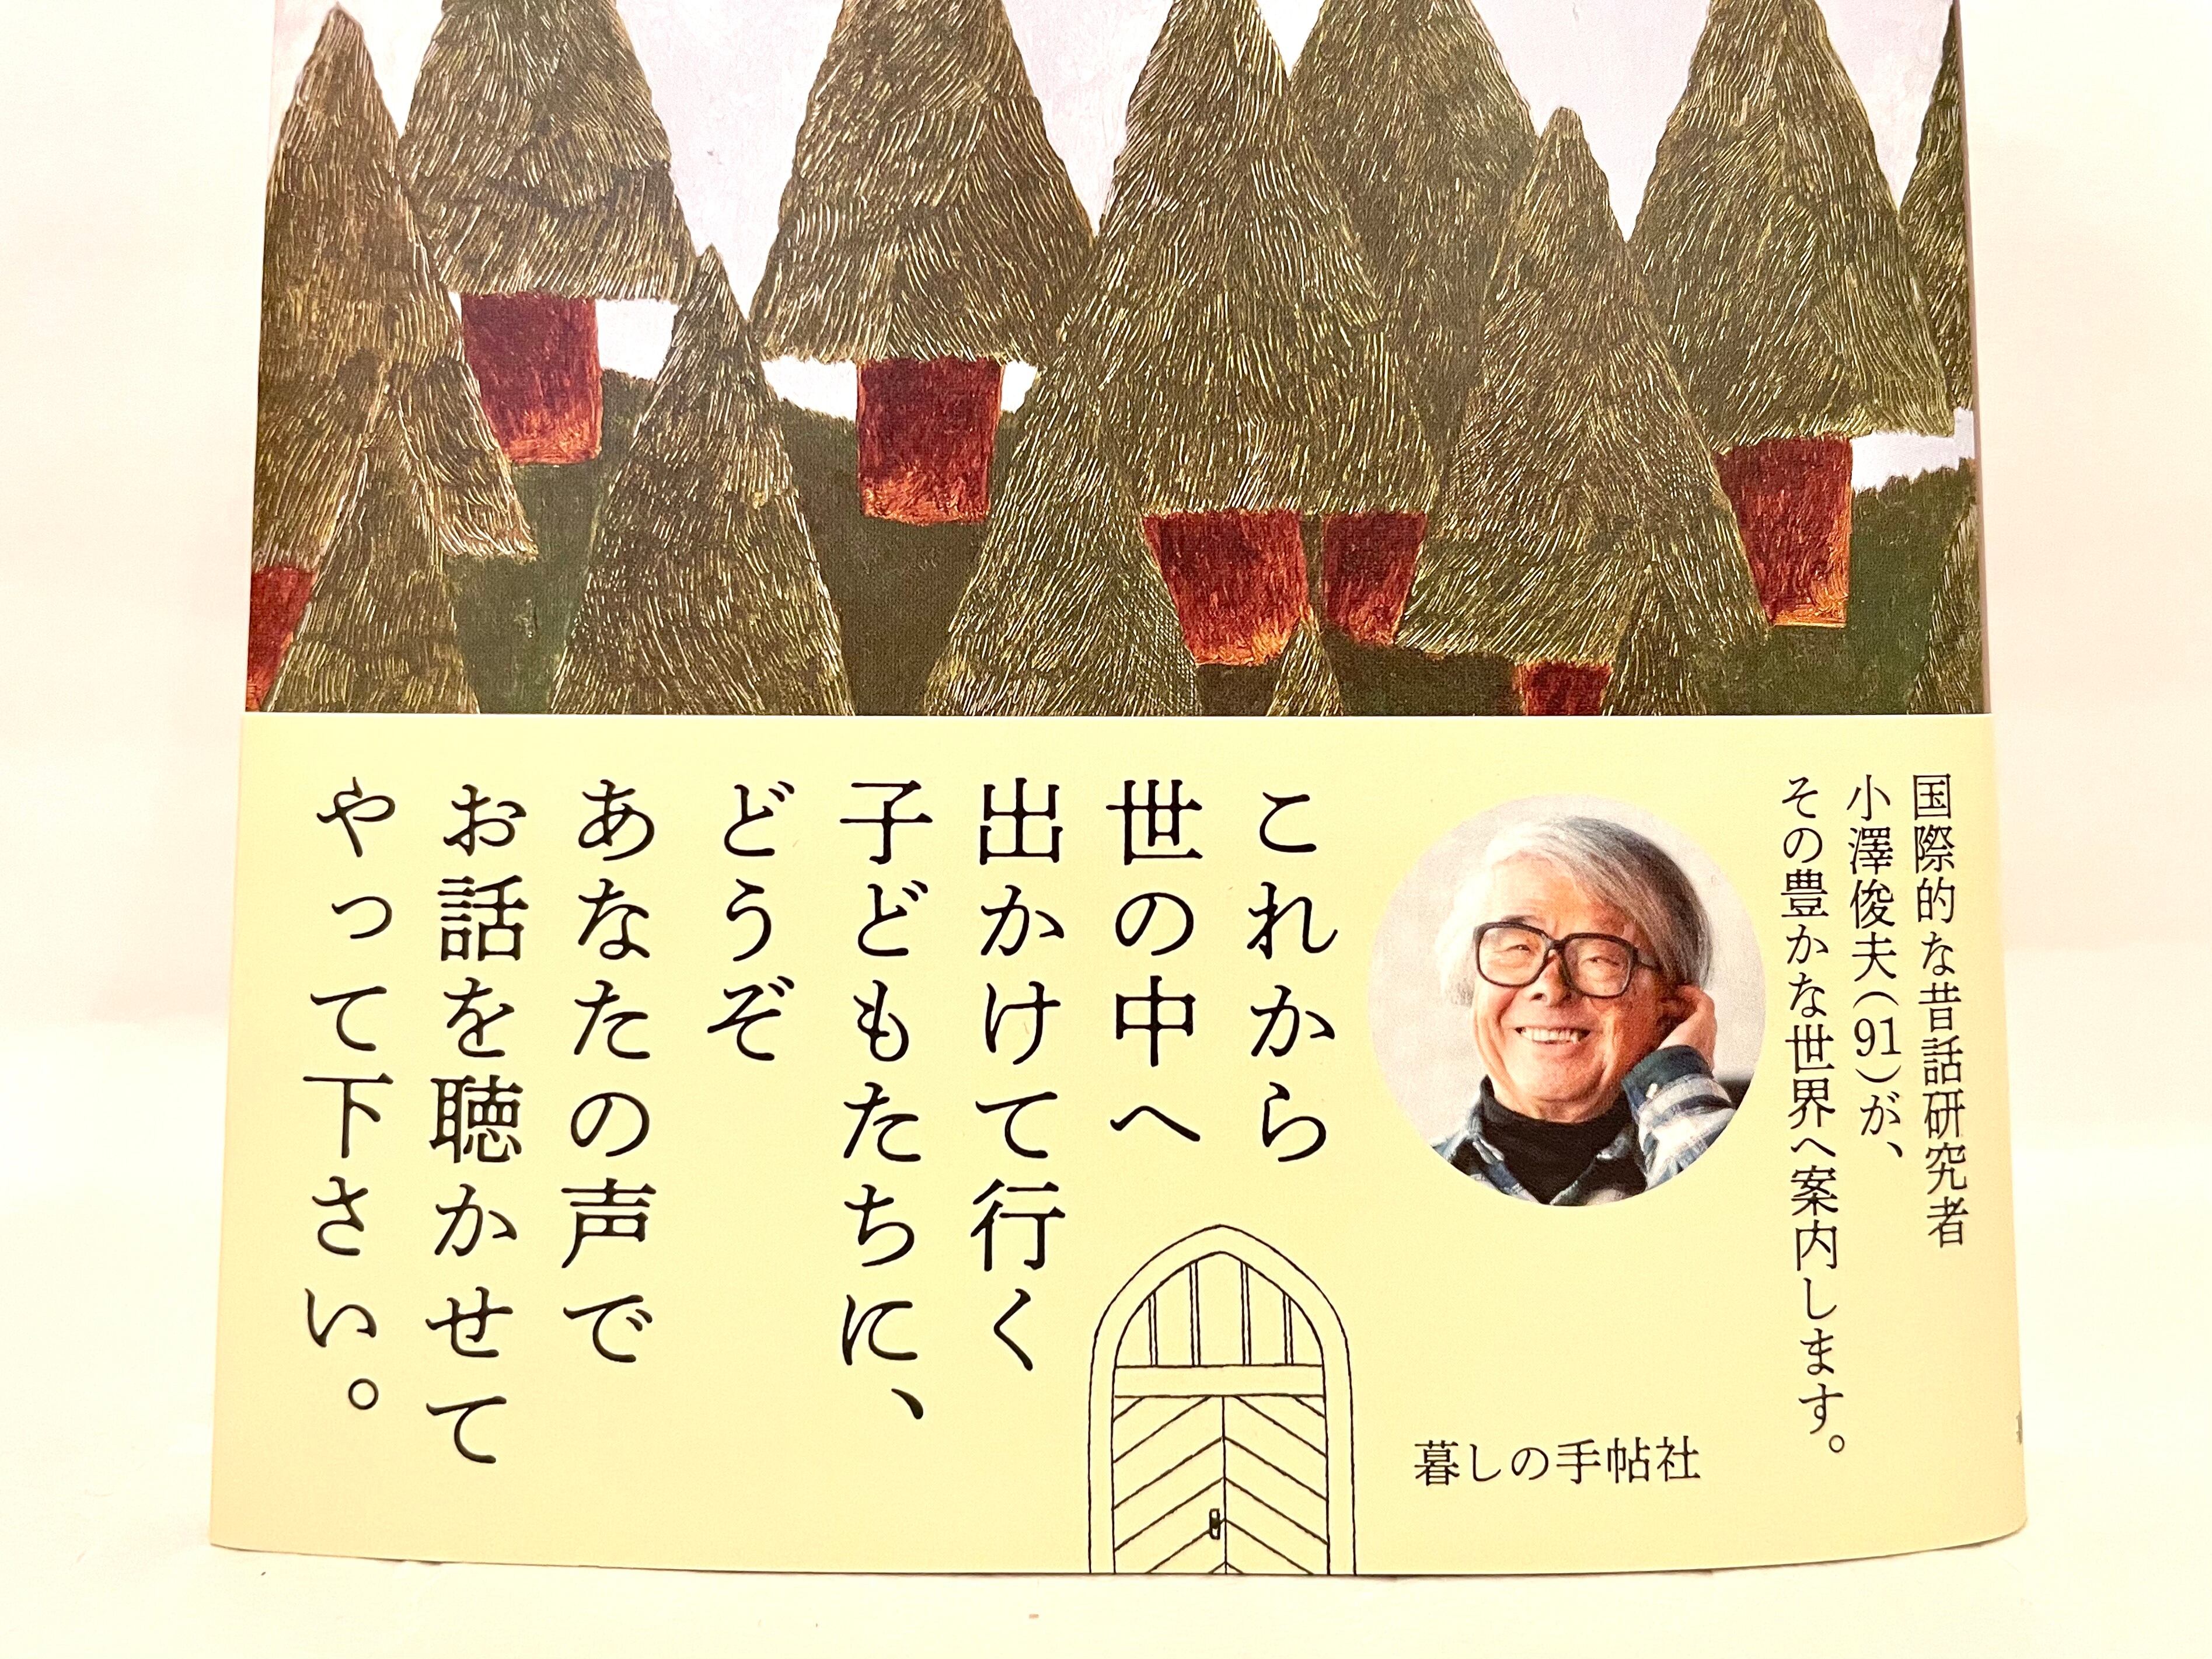 国際的な昔話研究者
小澤俊夫(91)が、
その豊かな世界へ案内します。
これから
世の中へ
出かけて行く
子どもたちに、
どうぞ
あなたの声で
お話を聴かせて
やって下さい。
暮しの手帖社